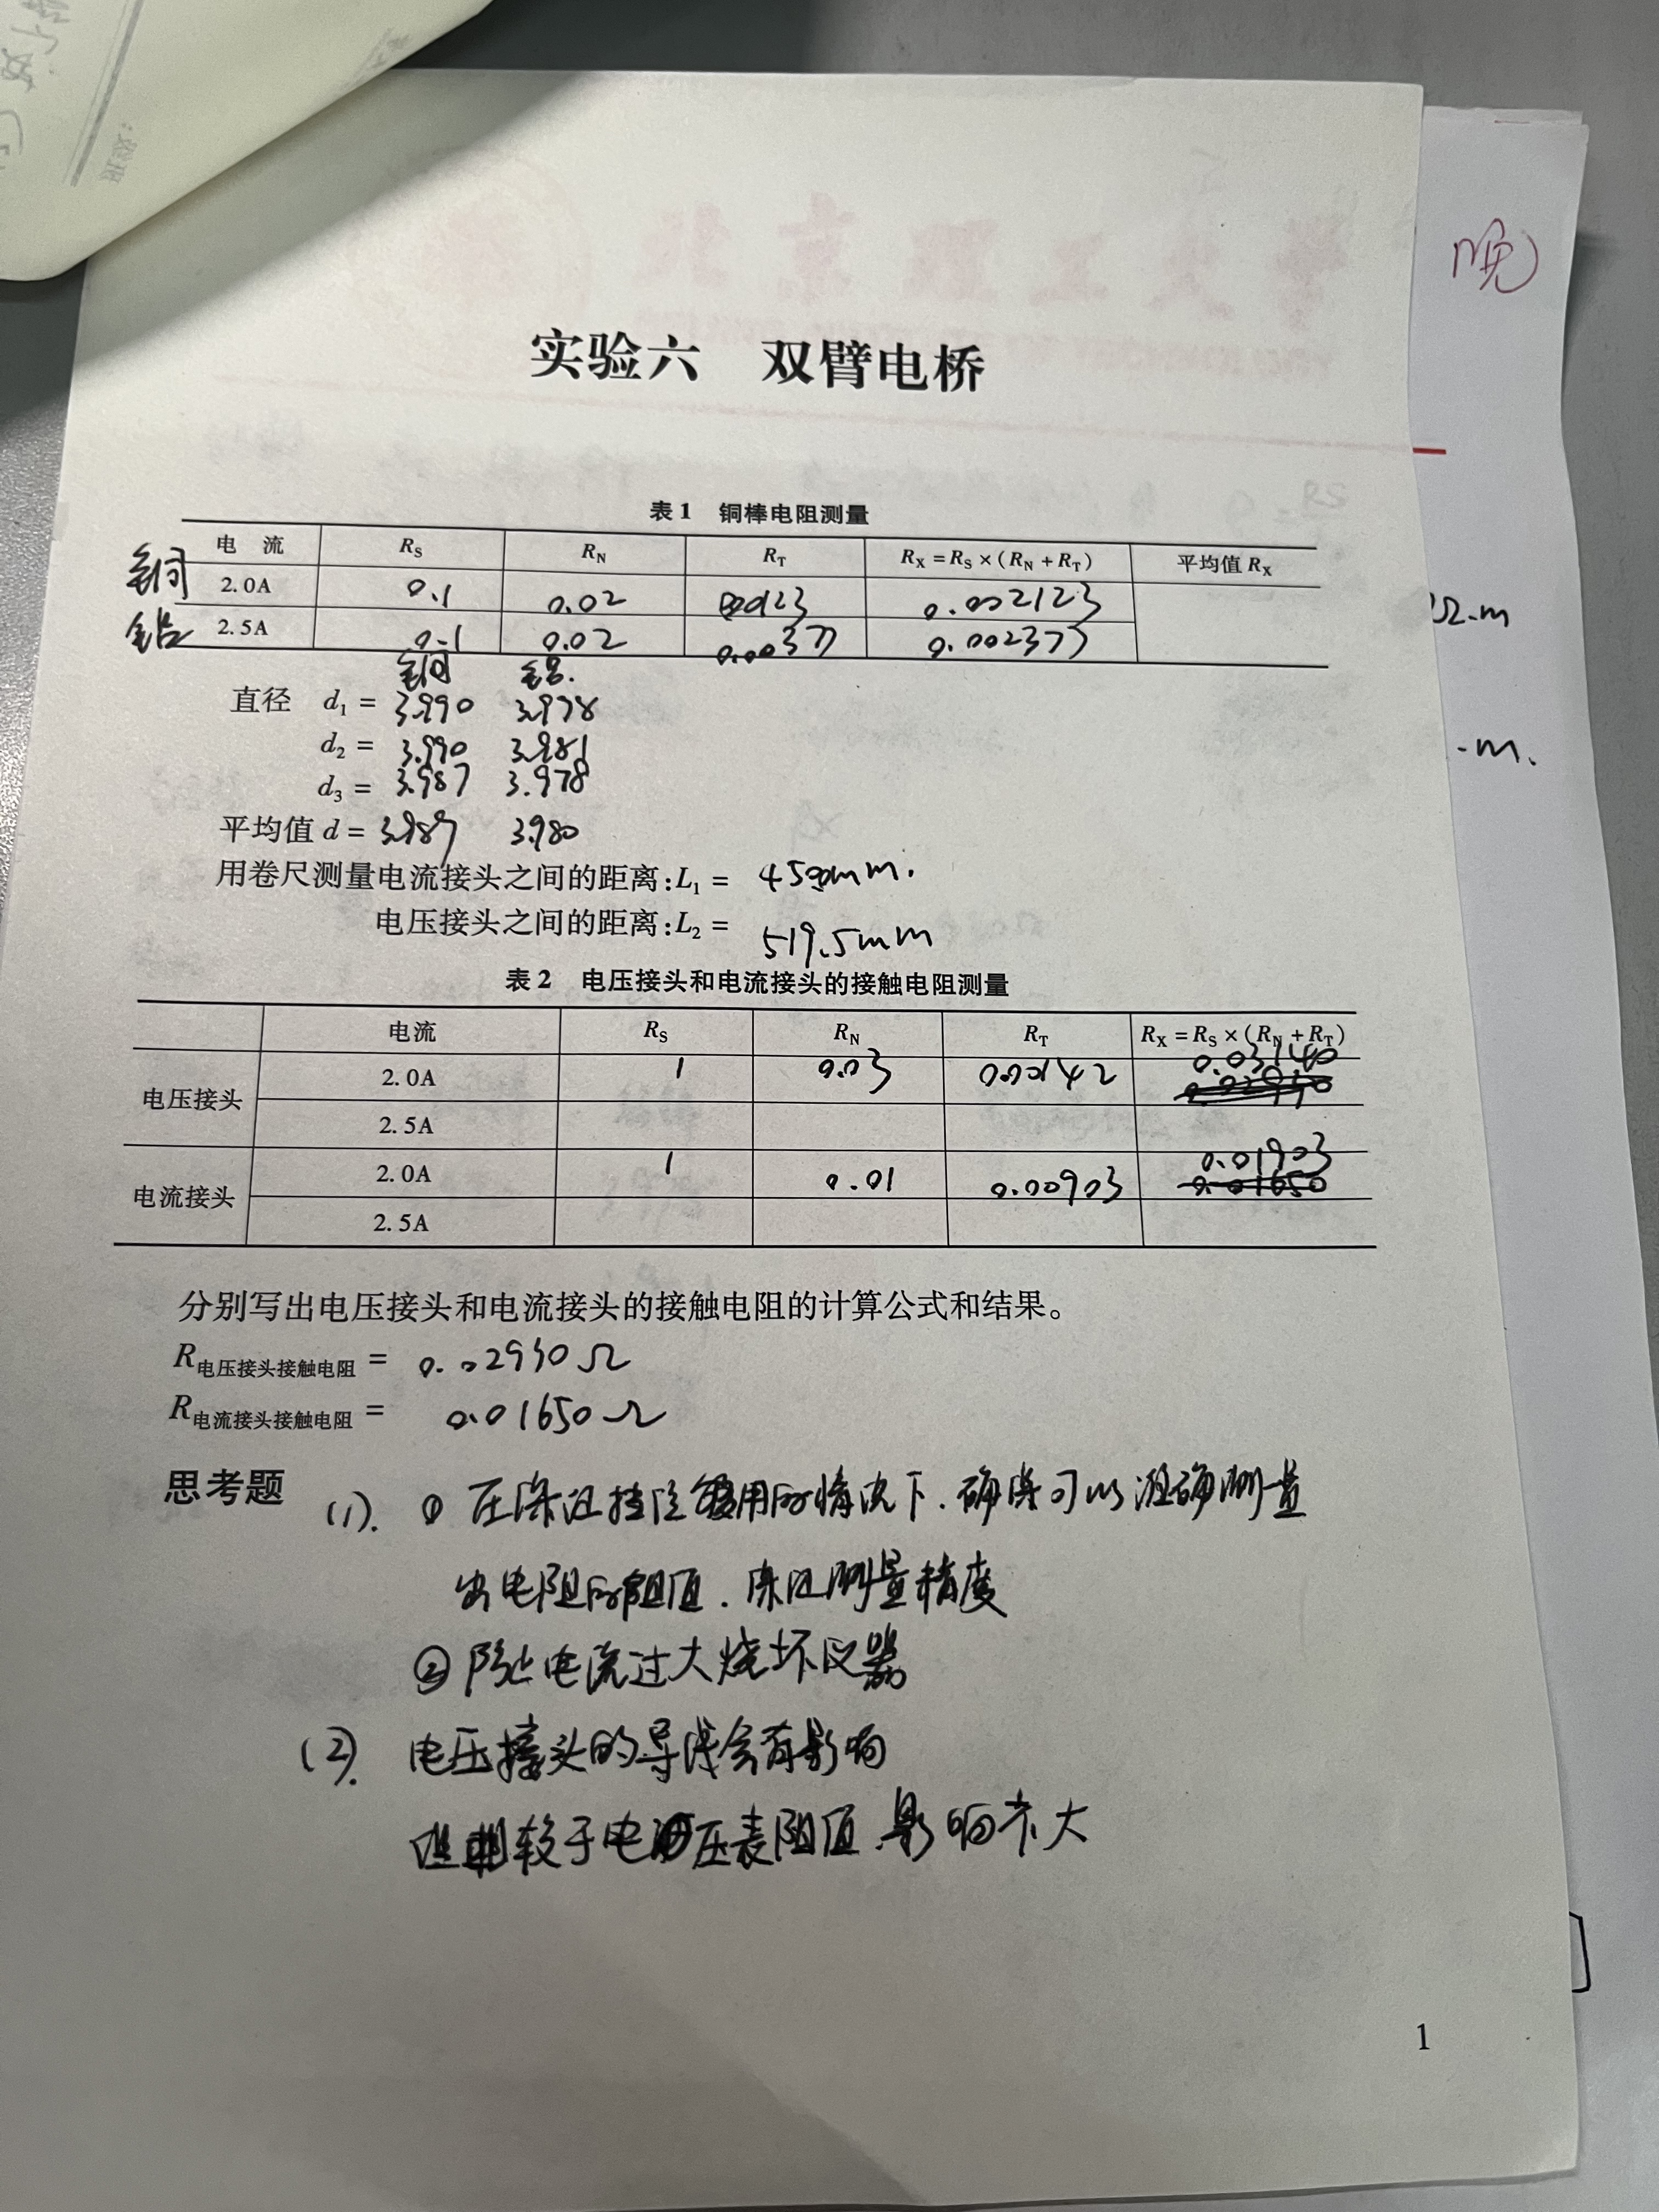 晚
实验六 双臂电桥
表1 铜棒电阻测量
电 流 R_S R_N R_T R_X = R_S × (R_N + R_T) 平均值 R_X
铜 2.0A 0.1 0.02 0.00123 0.002123
铝 2.5A 0.1 0.02 0.00377 0.002377
铜 铝.
直径 d₁ = 3.990 3.978
d₂ = 3.990 3.981
d₃ = 3.987 3.978
平均值 d = 3.989 3.980
用卷尺测量电流接头之间的距离:L₁ = 450mm.
电压接头之间的距离:L₂ = 519.5mm
表2 电压接头和电流接头的接触电阻测量
电流 R_S R_N R_T R_X = R_S × (R_N + R_T)
电压接头 2.0A 1 0.03 0.00142 0.03140
2.5A
电流接头 2.0A 1 0.01 0.00903 0.01903
0.01650
2.5A
分别写出电压接头和电流接头的接触电阻的计算公式和结果。
R电压接头接触电阻 = 0.02930Ω
R电流接头接触电阻 = 0.01650Ω
思考题 (1). ① 在保证挡位够用的情况下.确保可以准确测量
出电阻的阻值.保证测量精度
② 防止电流过大烧坏仪器
(2). 电压接头的导线会有影响
但相较于电压表阻值影响不大
Ω-m
-m.
1